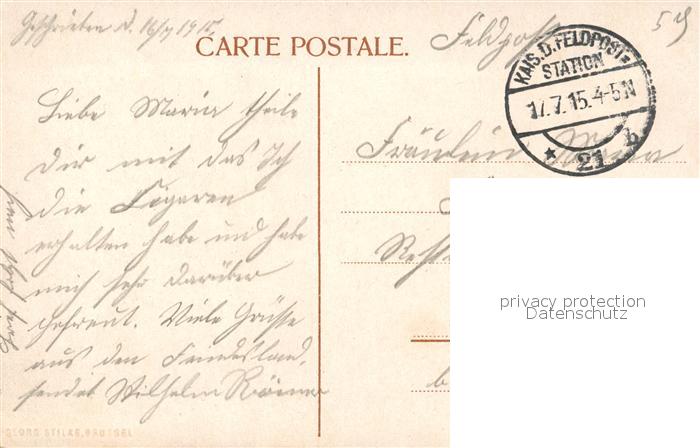 Geschrieben d. 16/7 1915
CARTE POSTALE.
Feldpost
KAIS.D.FELDPOST=
STATION
17.7.15.4-5N
* 21 b
Liebe Maria theile
Dir mit das Ich
die Cigaren
erhalten habe und habe
mich sehr darüber
gefreut. Viele Grüsse
aus den Feindesland.
sendet Wilhelm Römer
Fräulein
privacy protection
Datenschutz
GEORG STILKE, BRÜSSEL